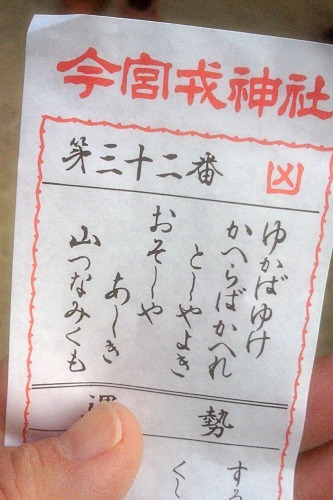 今宮戎神社
第三十二番 凶
ゆかばゆけ
かへらばかへれ
としやよき
おそしや
あしき
山つなみくも
勢
す
くし